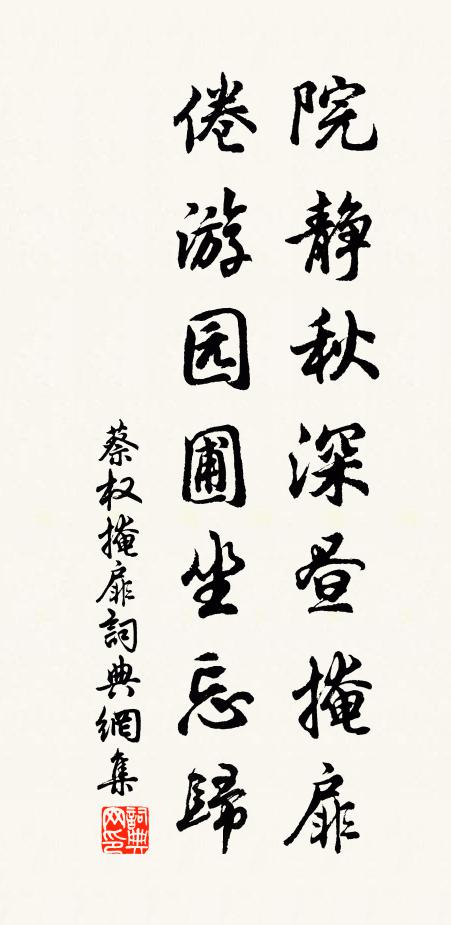 院静秋深昼掩扉
倦游园圃坐忘歸
蔡权掩扉詞典網集
詞典网印